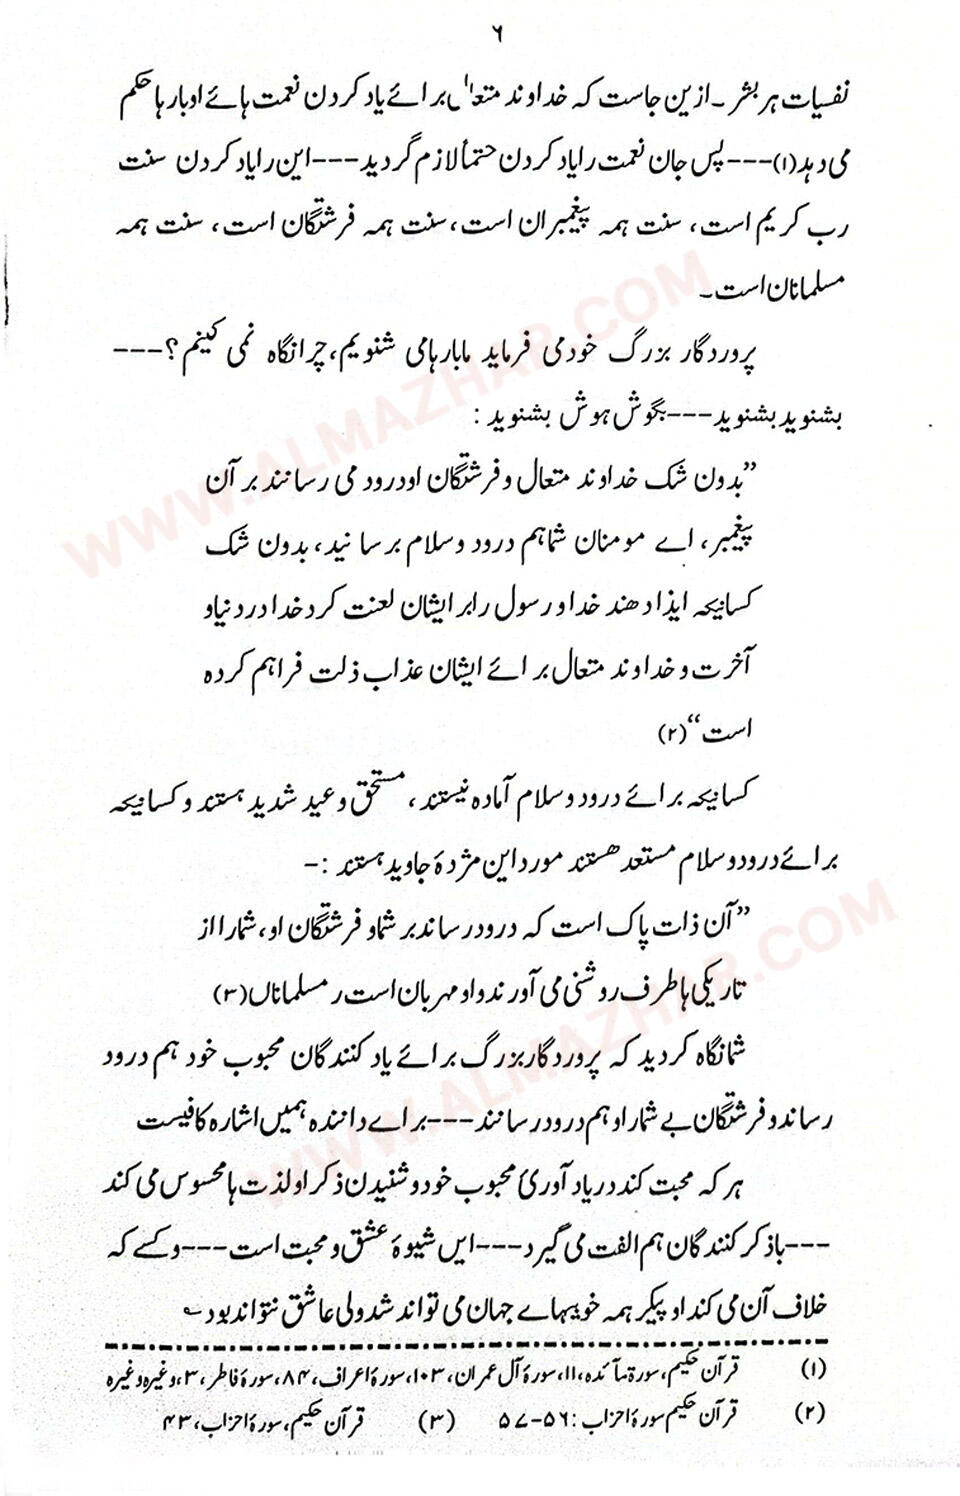 ۶
نفسیات ہر بشر۔ ازین جاست کہ خداوند متعال برائے یاد کردن نعمت ہائے او بارہا حکم
می دہد(۱)---پس جان نعمت را یاد کردن حتماً لازم گردید---این را یاد کردن سنت
رب کریم است، سنت ہمہ پیغمبران است، سنت ہمہ فرشتگان است، سنت ہمہ
مسلمانان است۔
پروردگار بزرگ خود می فرماید ما بارہا می شنویم، چرا نگاہ نمی کینم؟---
بشنوید بشنوید---بگوش ہوش بشنوید:
”بدون شک خداوند متعال و فرشتگان او درود می رسانند بر آن
پیغمبر، اے مومنان شما ہم درود و سلام برسانید، بدون شک
کسانیکہ ایذا دھند خدا و رسول را بر ایشان لعنت کرد خدا در دنیا و
آخرت و خداوند متعال برائے ایشان عذاب ذلت فراہم کردہ
است“(۲)
کسانیکہ برائے درود و سلام آمادہ نیستند، مستحق وعید شدید ہستند و کسانیکہ
برائے درود و سلام مستعد ھستند مورد این مژدۂ جاوید ہستند:-
”آن ذات پاک است کہ درود رساند بر شما و فرشتگان او، شما را از
تاریکی ہا طرف روشنی می آورند و او مہربان است ر مسلماناں(۳)
شما نگاہ کردید کہ پروردگار بزرگ برائے یاد کنندگان محبوب خود ہم درود
رساند و فرشتگان بے شمار او ہم درود رسانند---براے دانندہ ہمیں اشارہ کافیست
ہر کہ محبت کند در یاد آوریٔ محبوب خود و شنیدن ذکر او لذت ہا محسوس می کند
---با ذکر کنندگان ہم الفت می گیرد---ایں شیوۂ عشق و محبت است---و کسے کہ
خلاف آن می کند او پیکر ہمہ خوبیہاے جہان می تواند شد ولی عاشق نتواند بود ؎
(۱) قرآن حکیم، سورۃ مآئدہ، ۱۱، سورۂ آل عمران، ۱۰۳، سورۂ اعراف، ۸۴، سورۂ فاطر، ۳، وغیرہ وغیرہ
(۲) قرآن حکیم سورۂ احزاب: ۵۶-۵۷ (۳) قرآن حکیم، سورۂ احزاب، ۴۳
WWW.ALMAZHAR.COM
WWW.ALMAZHAR.COM